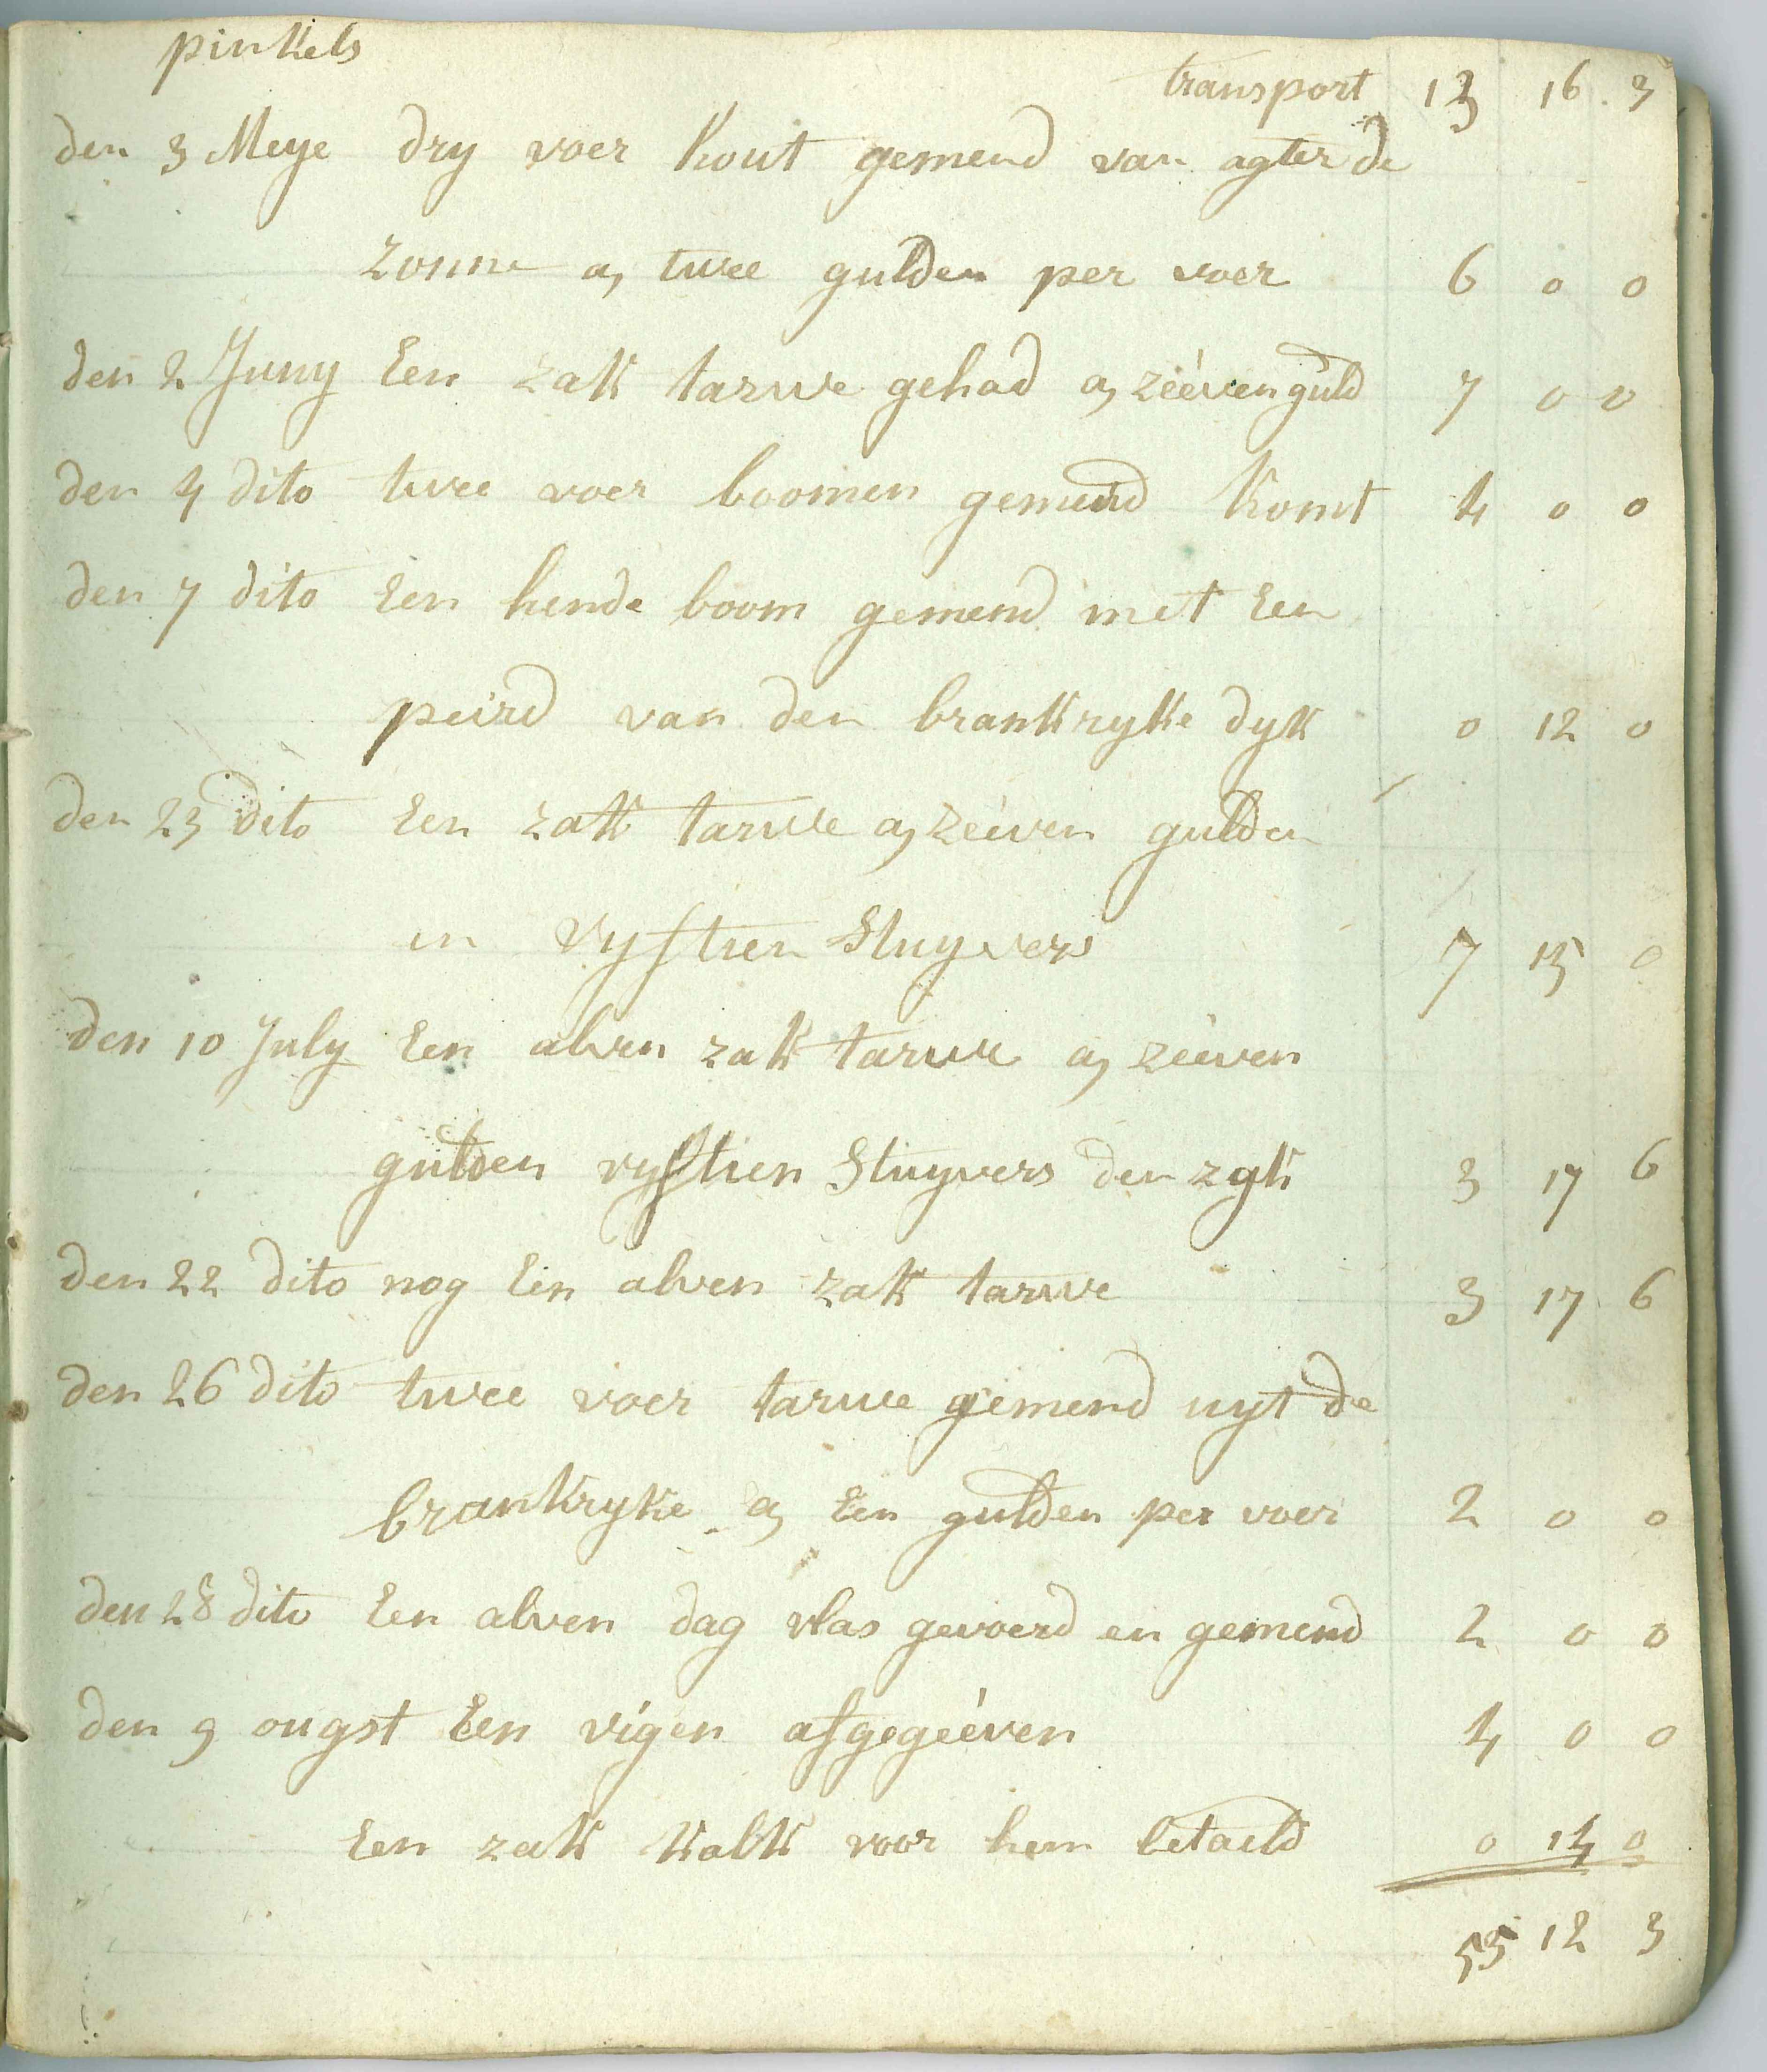 pinkels
transport 13 16 3
den 3 Meye dry voer hout gemend van agter de
zonne a, twee gulden per voer 6 0 0
den 2 Juny Een zak tarwe gehad a, zééven guld 7 0 0
den 4 dito twee voer boomen gemend komt 4 0 0
den 7 dito Een hende boom gemend met Een
peird van den brankryke dyk 0 12 0
den 23 dito Een zak tarwe a, zeéven gulden
en vyftien Stuyvers 7 15 0
den 10 July Een alven zak tarwe a, zeéven
gulden vyftien Stuyvers den zak 3 17 6
den 22 dito nog Een alven zak tarwe 3 17 6
den 26 dito twee voer tarwe gemend uyt de
brankryke a, Een gulden per voer 2 0 0
den 28 dito Een alven dag vlas gevoerd en gemend 2 0 0
den 9 ougst Een vigen afgegeéven 4 0 0
Een zak kalk voor hem betaeld 0 14 0
55 12 3